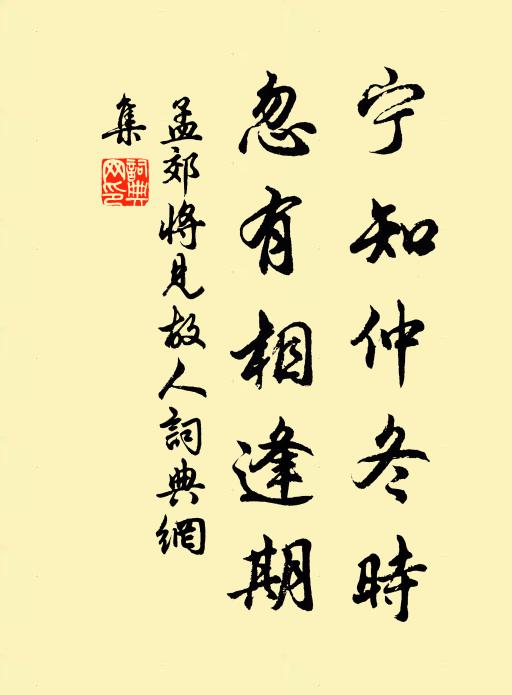 宁知仲冬時
忽有相逢期
孟郊将見故人詞典網
集
詞典
网印